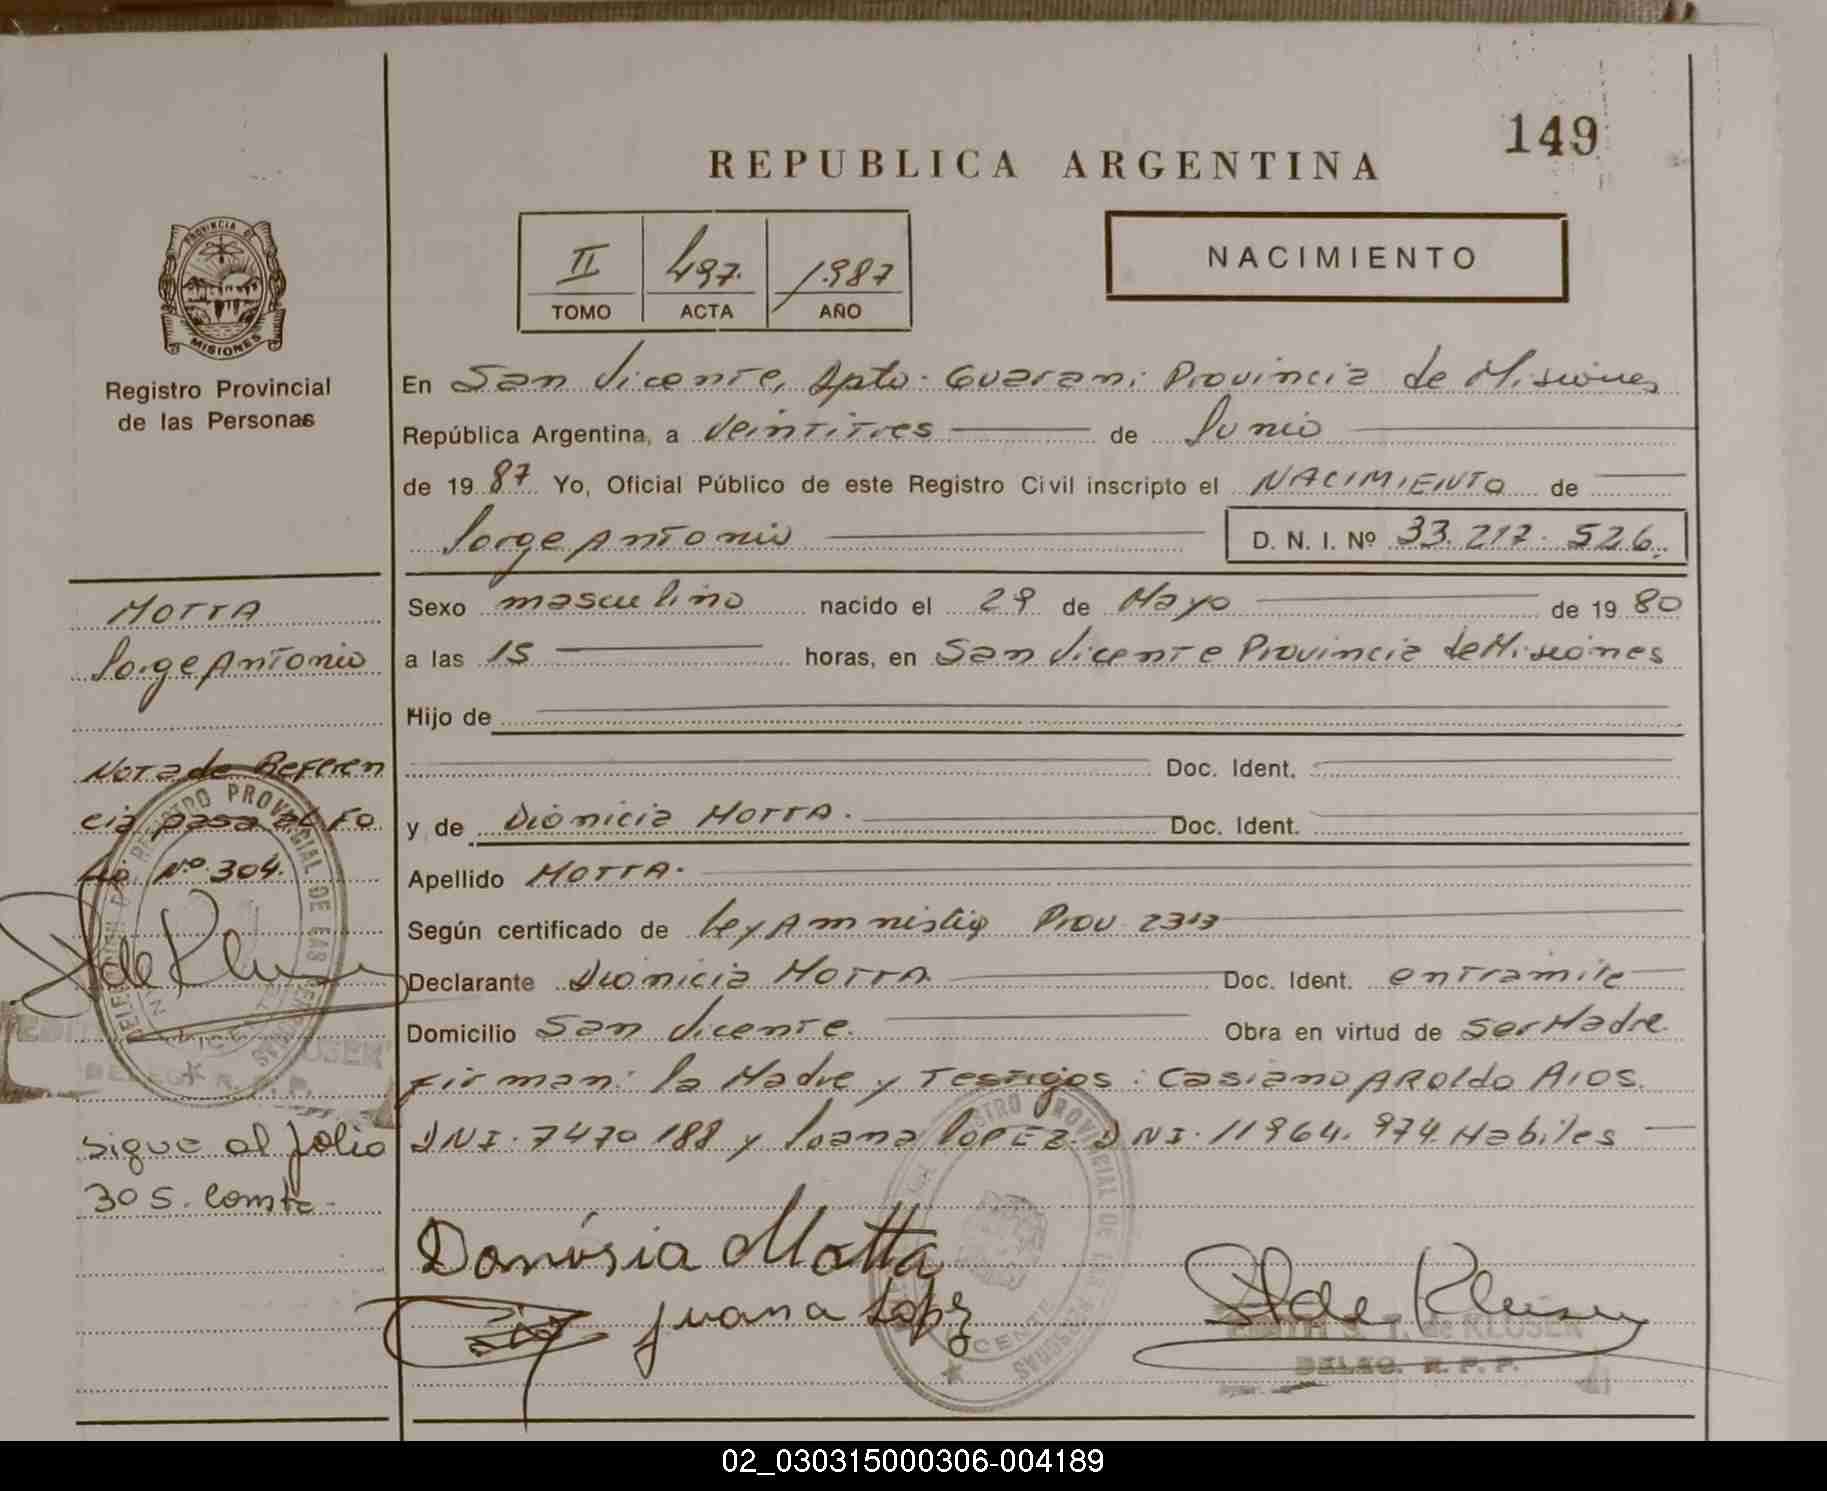 149
REPUBLICA ARGENTINA
II 497. 1987
TOMO ACTA AÑO
NACIMIENTO
PROVINCIA DE
MISIONES
Registro Provincial
de las Personas
En San Vicente, Dpto. Guarani Provincia de Misiones
República Argentina, a Veintitres de Junio
de 1987 Yo, Oficial Público de este Registro Civil inscripto el NACIMIENTO de
Jorge Antonio D. N. I. Nº 33.217.526.
Sexo masculino nacido el 29 de Mayo de 1980
a las 15 horas, en San Vicente Provincia de Misiones
Hijo de
Doc. Ident.
y de Dionicia MOTTA. Doc. Ident.
Apellido MOTTA.
Según certificado de Ley Amnistia Prov
Declarante Dionicia MOTTA Doc. Ident. entramite
Domicilio San Vicente. Obra en virtud de Ser Madre
Firman: la Madre y Testigos: Casiano AROLDO
DNI. 7470188 y Juana LOPEZ DNI. 11964.974. Habiles
MOTTA
Jorge Antonio
Nota de Referen
cia pasa al Fo
lio Nº 304.
sigue al folio
305. Comte.
REGISTRO PROVINCIAL DE LAS PERSONAS
DELEG. R. P. P.
REGISTRO PROVINCIAL DE LAS PERSONAS
Donísia Motta
Juana Lopez
de Klusen
EDITH S. T. de KLUSEN
DELEG. R. P. P.
02_030315000306-004189